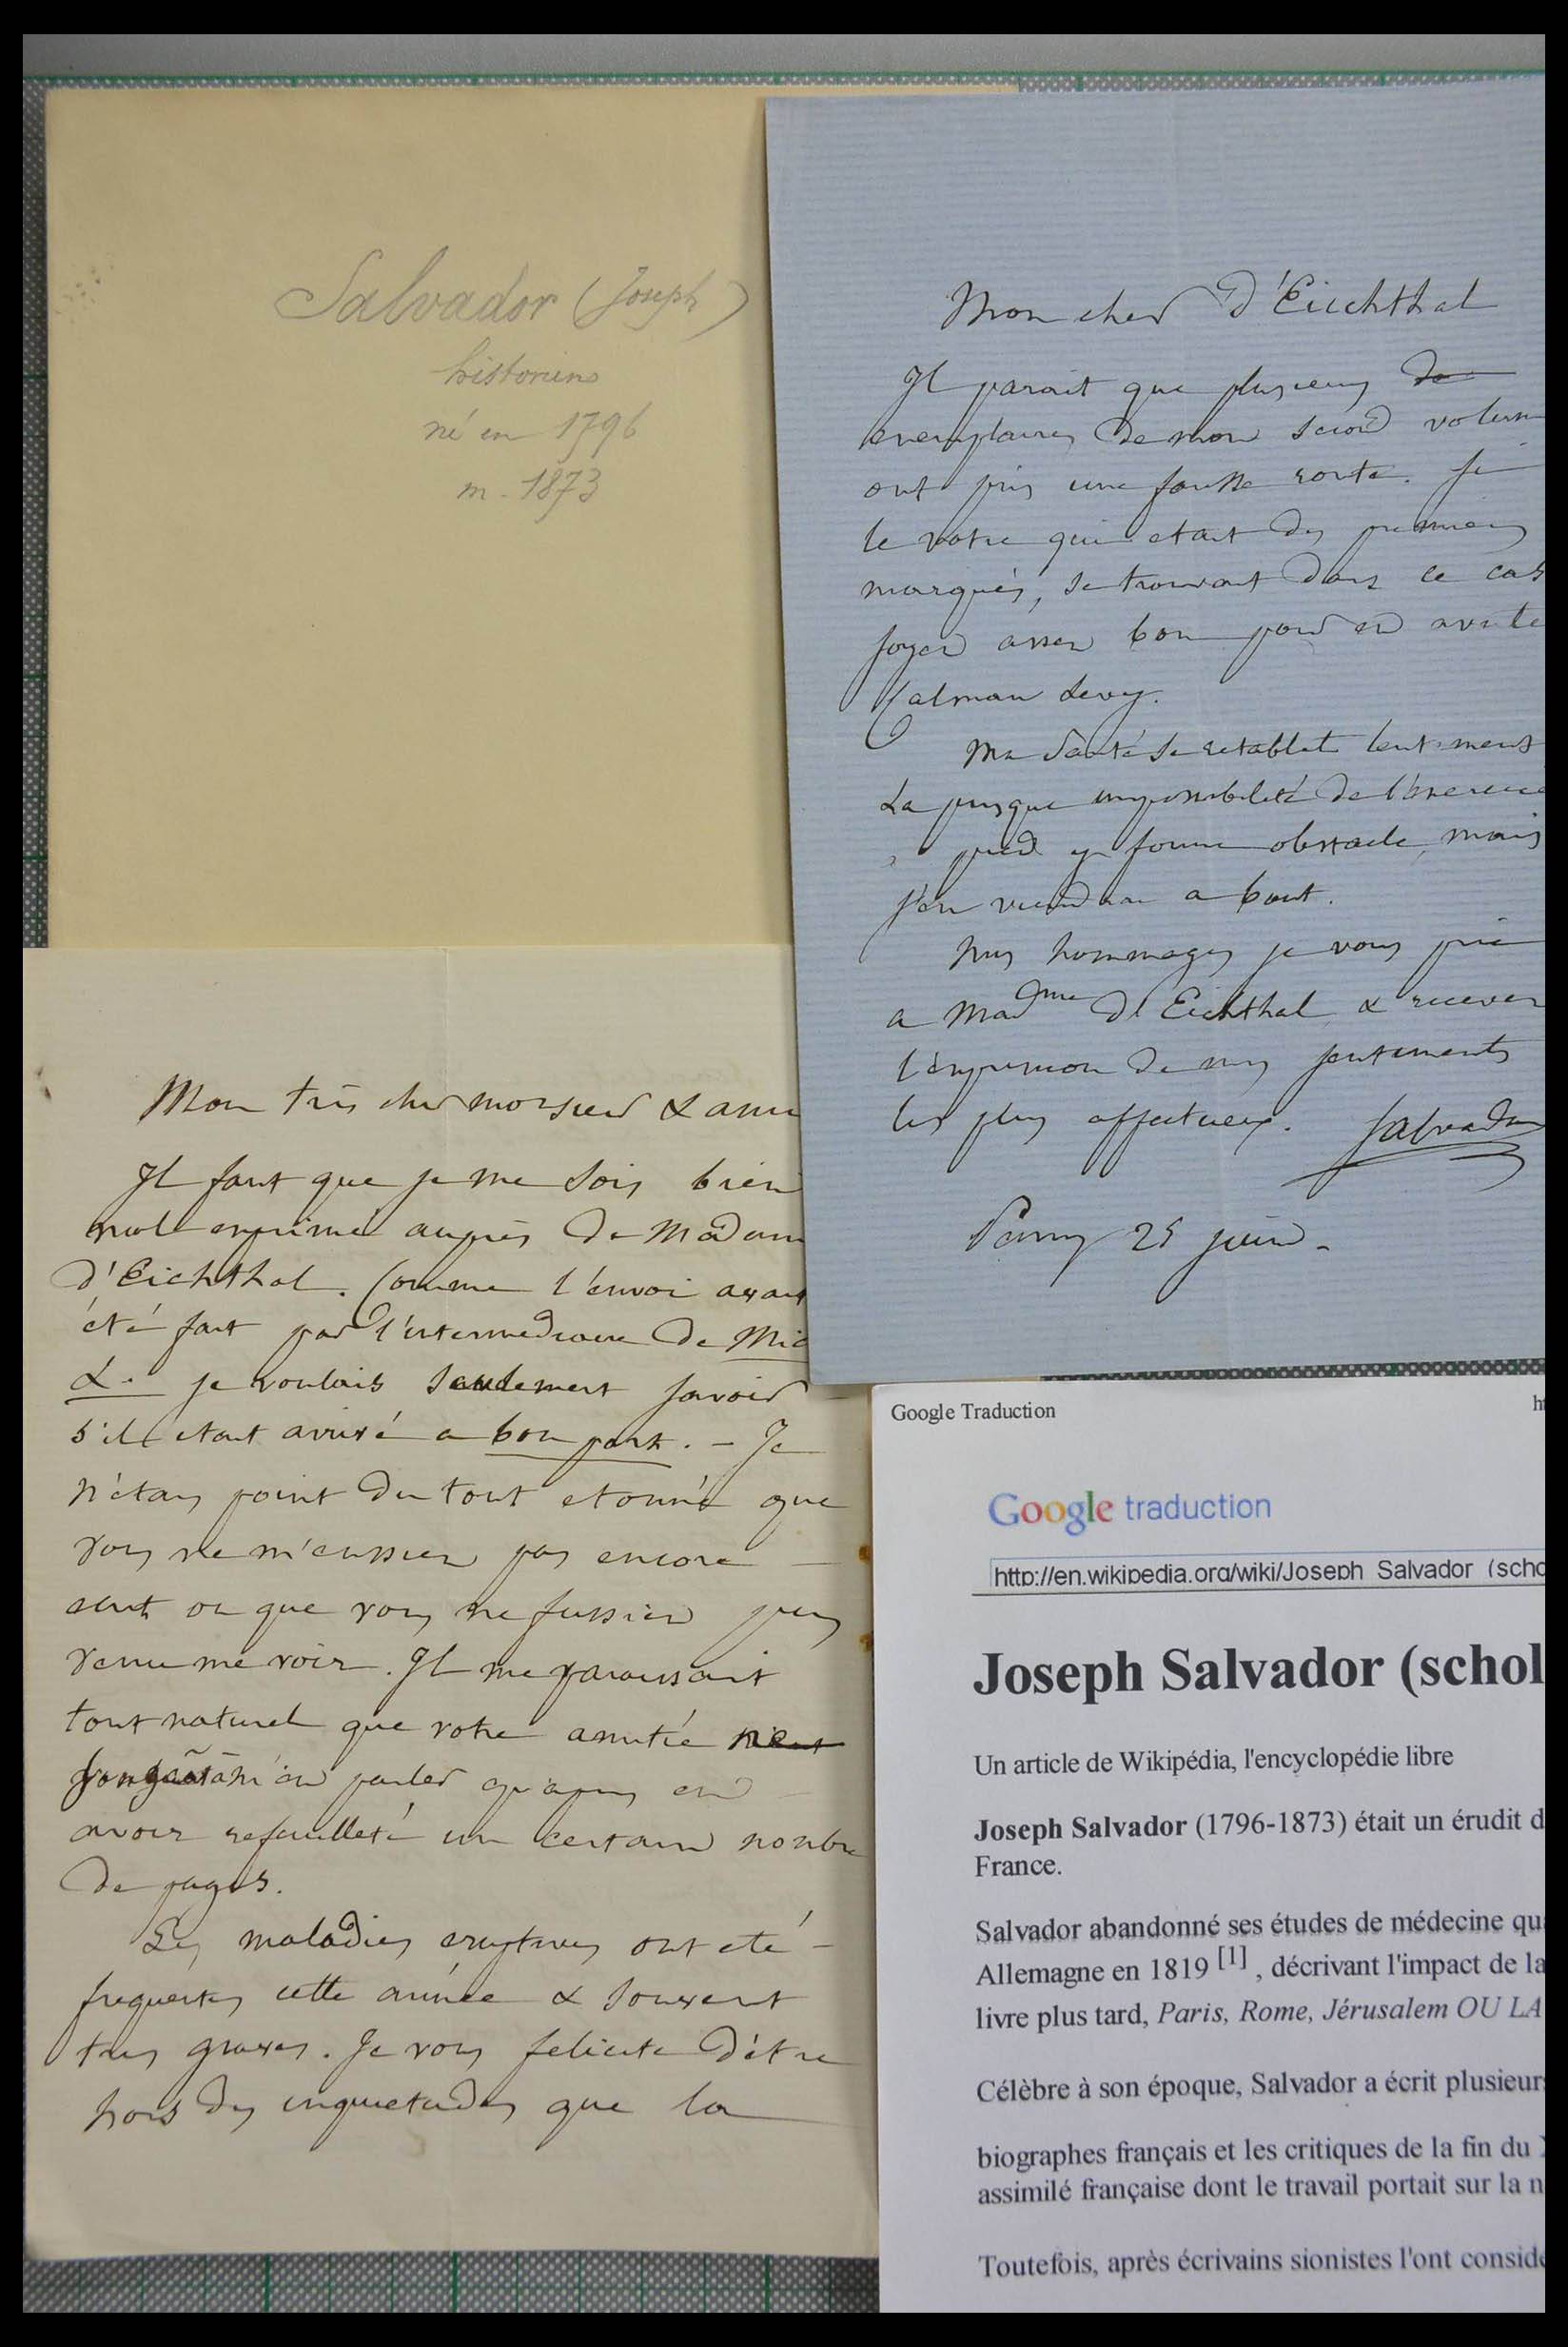 Salvador (Joseph)
historien
né en 1796
m. 1873
Mon cher d'Eichthal
Il parait que plusieurs de
exemplaires de mon second volum
ont pris une fausse route. Si
le votre qui etait des premiers
marqués, se trouvait dans ce cas
soyez assez bon pour en
Calman Levy.
Ma santé se retablit lentement
La presque impossibilité de l'exercice
a pied y forme obstacle, mais
j'en viendrai a bout.
Mes hommages je vous prie
a Madme d'Eichthal & recevez
l'expression de mes sentiments
les plus affectueux. Salvador
25 juin.
Mon très cher monsieur & ami
Il faut que je me sois bien
mal exprimé auprès de Madam
d'Eichthal. Comme l'envoi avait
été fait par l'intermediaire de Mic
L. je voulais seulement savoir
s'il etait arrivé a bon port. – Je
n'étais point du tout etonné que
vous ne m'eussiez pas encore
ecrit ou que vous ne fussiez pas
venu me voir. Il me paraissait
tout naturel que votre amitié
m'en parler qu'apres en
avoir refeuilleté un certain nombre
de pages.
Les maladies eruptives ont eté
frequentes cette année & souvent
tres graves. Je vous felicite d'être
hors des inquietudes que la
Google Traduction
Google traduction
http://en.wikipedia.org/wiki/Joseph_Salvador_(scho
Joseph Salvador (schol
Un article de Wikipédia, l'encyclopédie libre
Joseph Salvador (1796-1873) était un érudit d
France.
Salvador abandonné ses études de médecine qu
Allemagne en 1819 [1] , décrivant l'impact de la
livre plus tard, Paris, Rome, Jérusalem OU LA
Célèbre à son époque, Salvador a écrit plusieurs
biographes français et les critiques de la fin du
assimilé française dont le travail portait sur la n
Toutefois, après écrivains sionistes l'ont considé